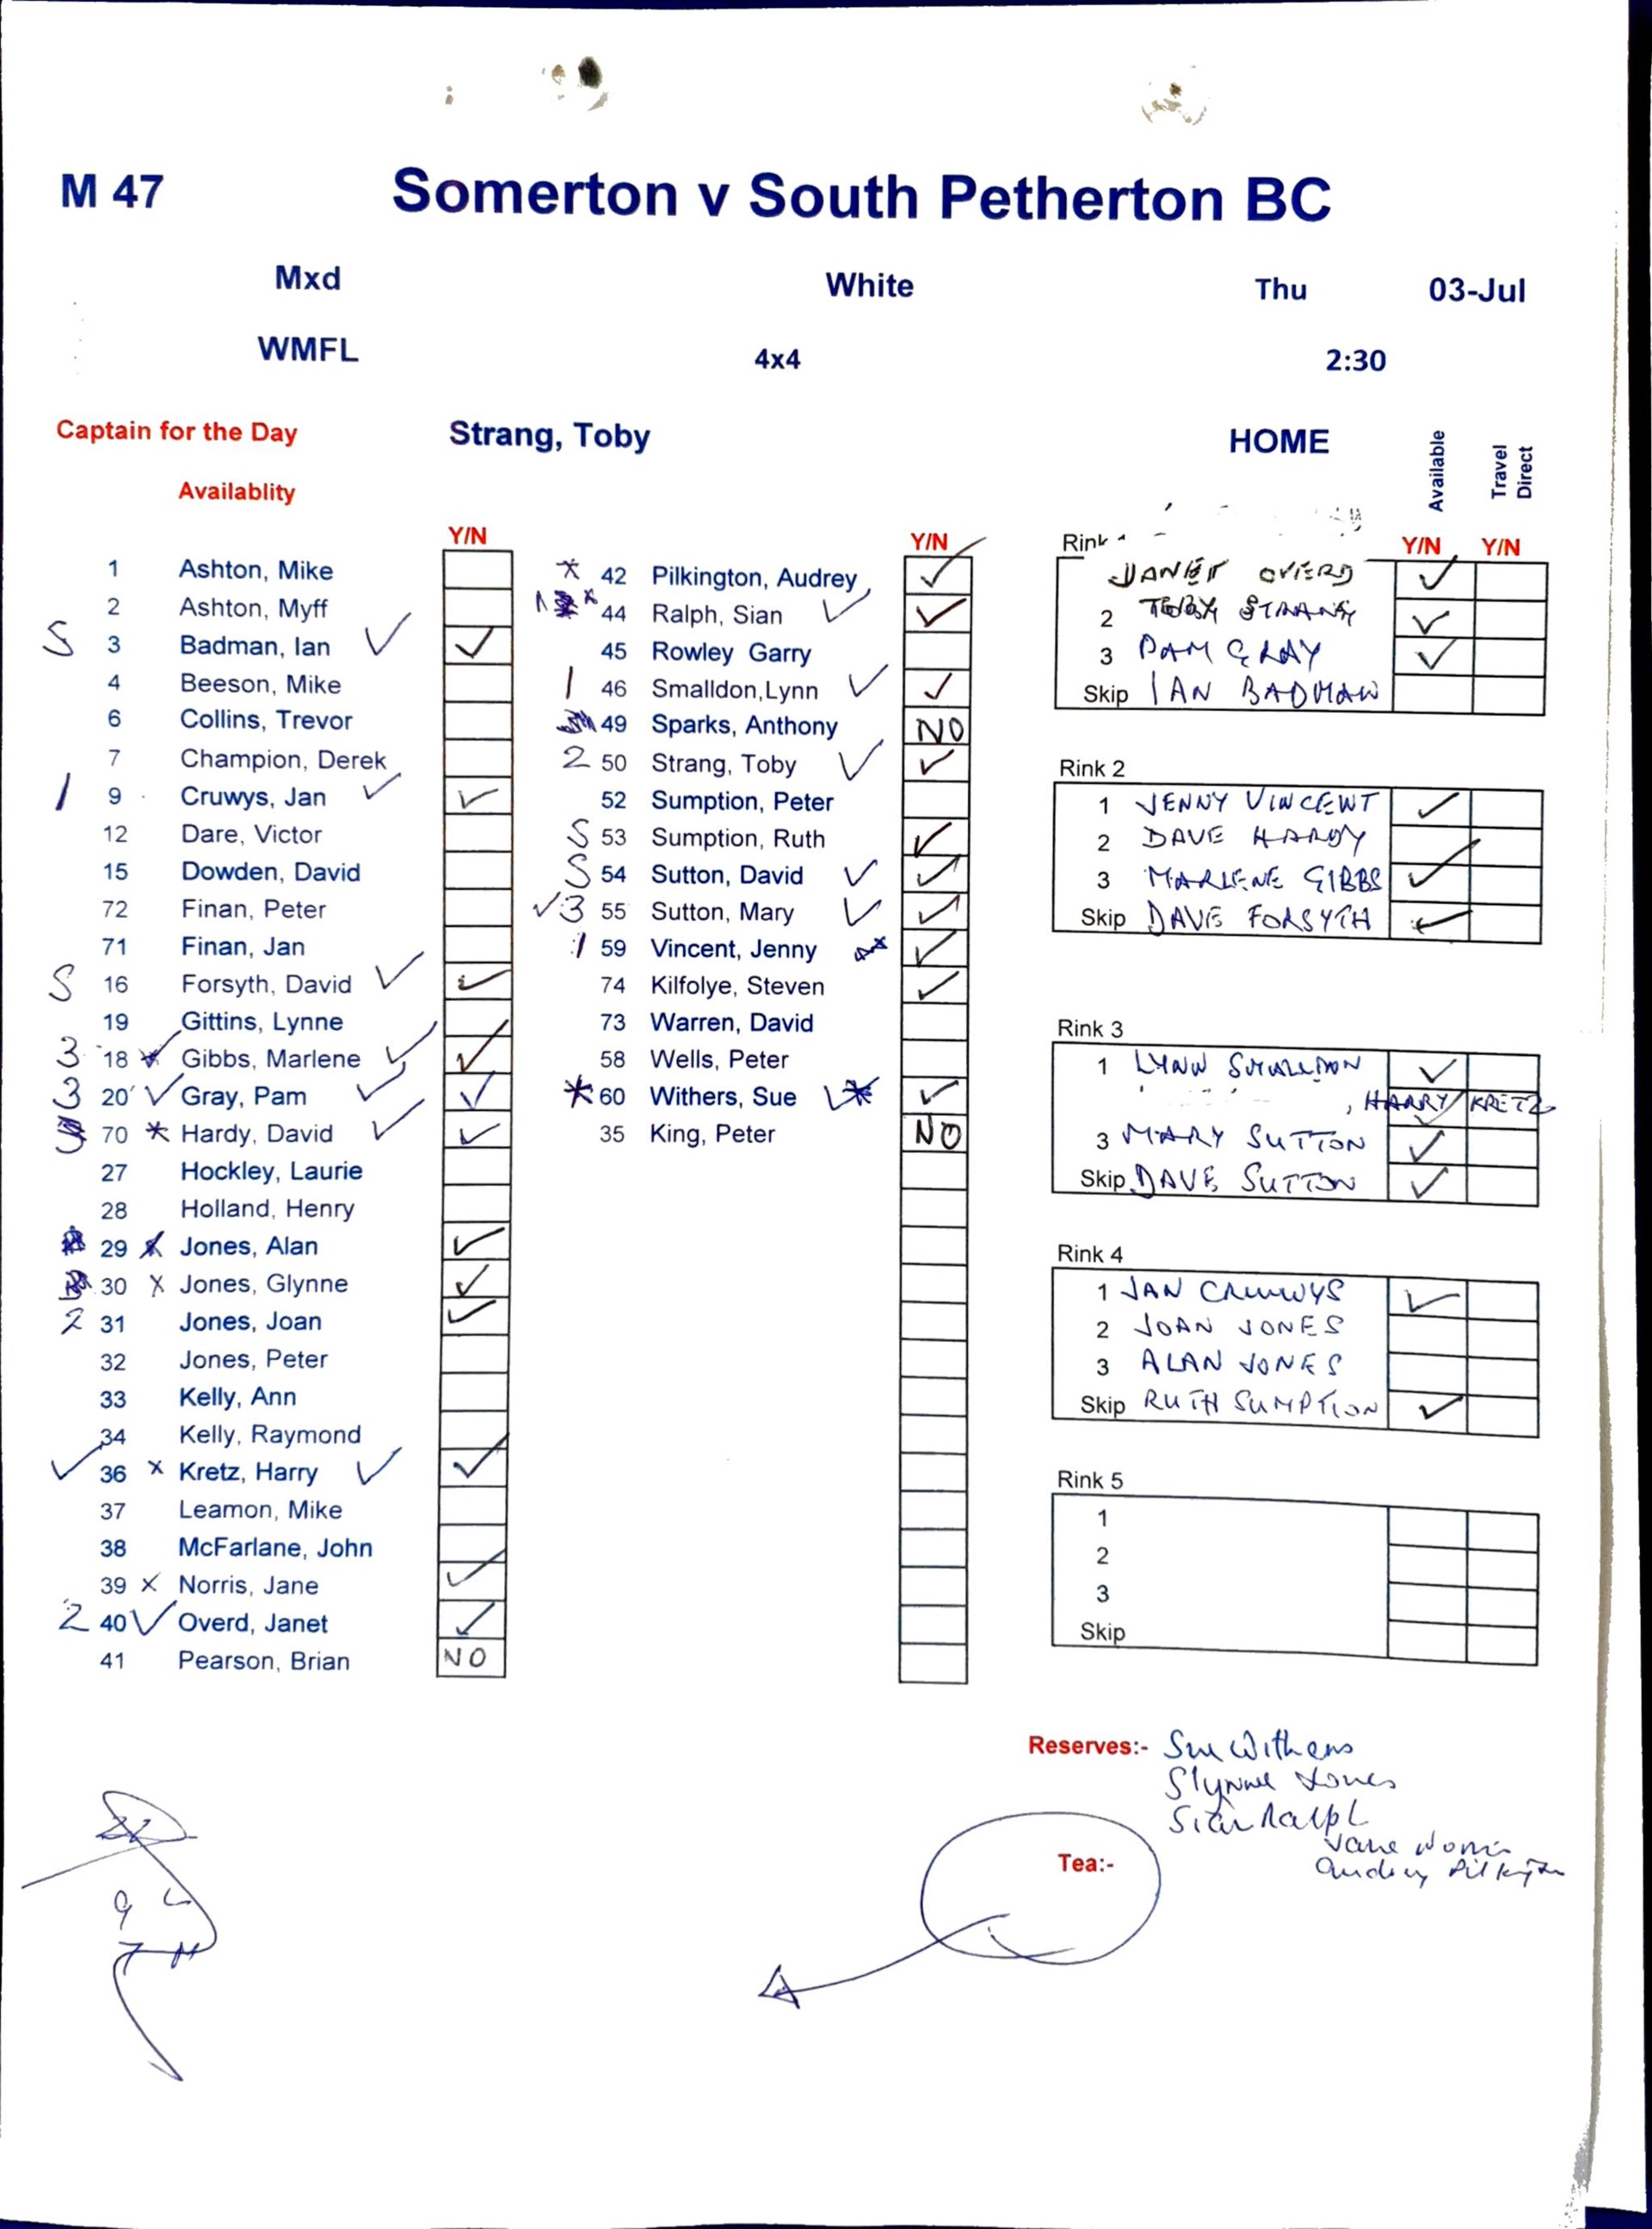 M 47 Somerton v South Petherton BC
Mxd White Thu 03-Jul
WMFL 4x4 2:30
Captain for the Day Strang, Toby HOME Available Travel Direct
Availablity
Y/N
1 Ashton, Mike
2 Ashton, Myff
S 3 Badman, Ian ✓ ✓
4 Beeson, Mike
6 Collins, Trevor
7 Champion, Derek
1 9 Cruwys, Jan ✓ ✓
12 Dare, Victor
15 Dowden, David
72 Finan, Peter
71 Finan, Jan
S 16 Forsyth, David ✓ ✓
19 Gittins, Lynne
3 18 Gibbs, Marlene ✓ ✓
3 20 ✓ Gray, Pam ✓ ✓
70 * Hardy, David ✓ ✓
27 Hockley, Laurie
28 Holland, Henry
29 Jones, Alan ✓
30 x Jones, Glynne ✓
2 31 Jones, Joan ✓
32 Jones, Peter
33 Kelly, Ann
34 Kelly, Raymond
✓ 36 x Kretz, Harry ✓ ✓
37 Leamon, Mike
38 McFarlane, John
39 x Norris, Jane ✓
2 40 ✓ Overd, Janet ✓
41 Pearson, Brian NO
Y/N
* 42 Pilkington, Audrey ✓
44 Ralph, Sian ✓ ✓
45 Rowley Garry
1 46 Smalldon,Lynn ✓ ✓
49 Sparks, Anthony NO
2 50 Strang, Toby ✓ ✓
52 Sumption, Peter
S 53 Sumption, Ruth ✓
S 54 Sutton, David ✓ ✓
✓ 3 55 Sutton, Mary ✓ ✓
1 59 Vincent, Jenny ✓
74 Kilfolye, Steven ✓
73 Warren, David
58 Wells, Peter
* 60 Withers, Sue ✓ ✓
35 King, Peter NO
Rink Y/N Y/N
JANET OVERD ✓
2 TOBY STRANG ✓
3 PAM GRAY ✓
Skip IAN BADMAN
Rink 2
1 JENNY VINCENT ✓
2 DAVE HARDY
3 MARLENE GIBBS ✓
Skip DAVE FORSYTH ✓
Rink 3
1 LYNN SMALLDON ✓
HARRY KRETZ ✓
3 MARY SUTTON ✓
Skip DAVE SUTTON ✓
Rink 4
1 JAN CRUWYS ✓
2 JOAN JONES
3 ALAN JONES
Skip RUTH SUMPTION ✓
Rink 5
1
2
3
Skip
Reserves:- Sue Withers
Glynne Jones
Sian Ralph
Jane Norris
Audrey Pilkington
Tea:-